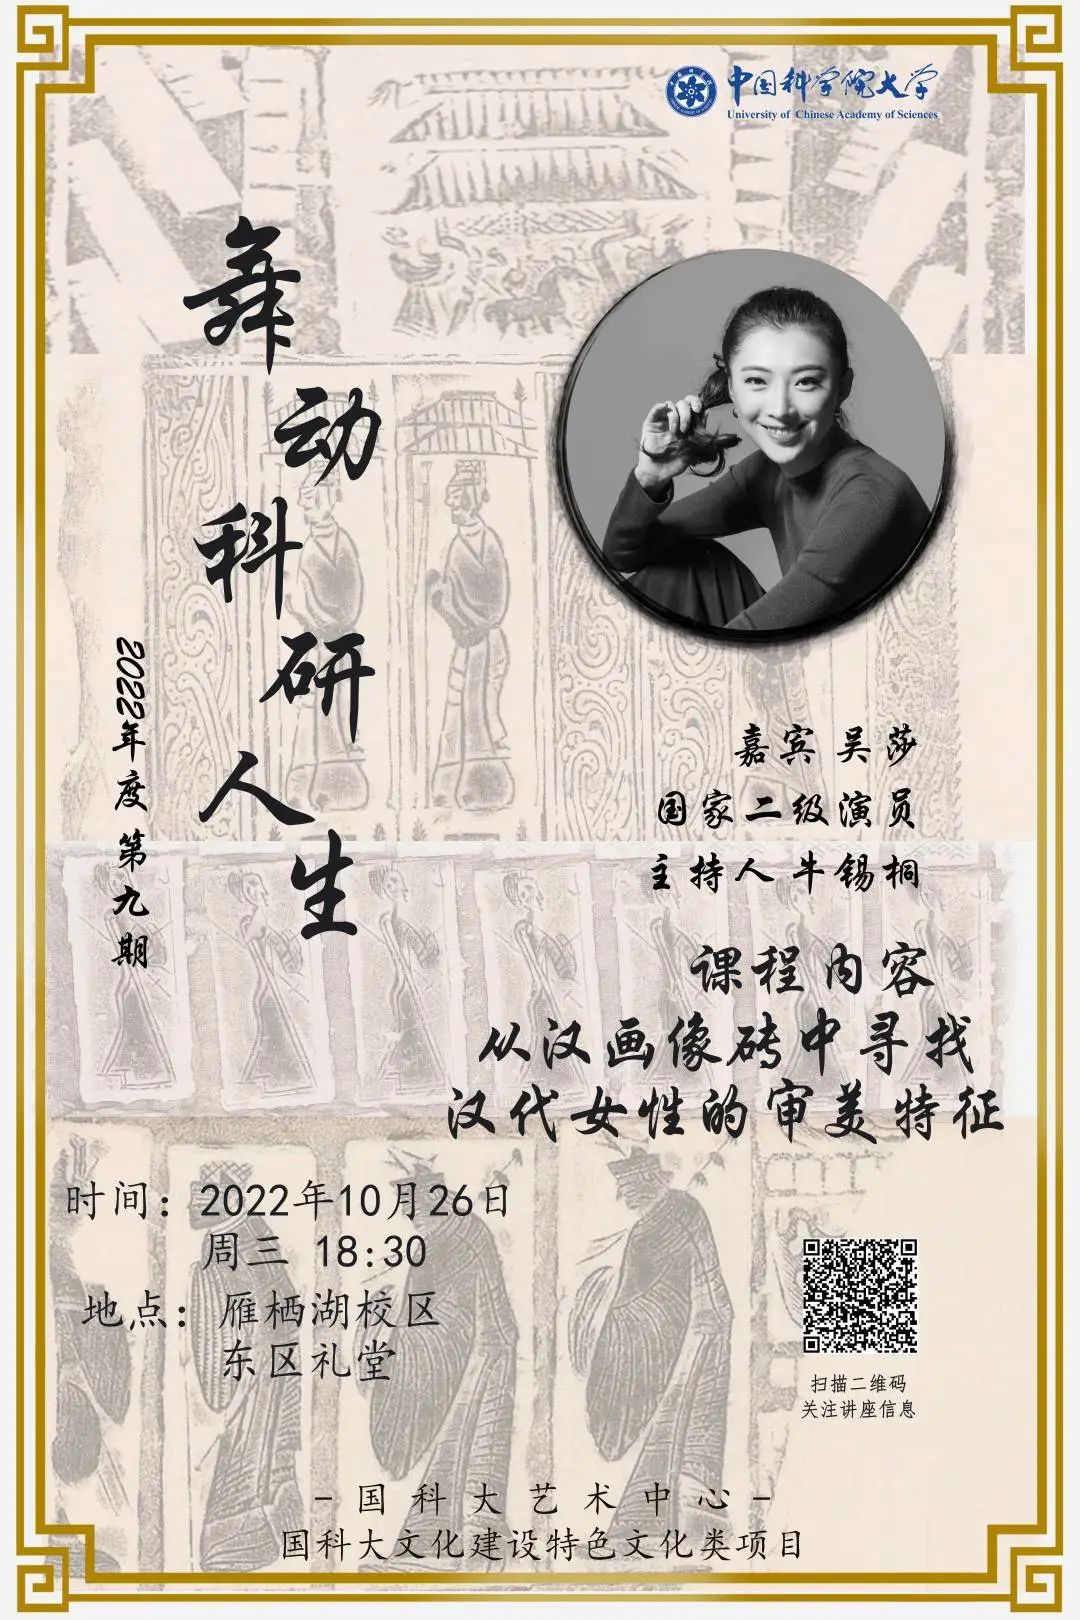 中国科学院大学
University of Chinese Academy of Sciences
舞动科研人生
2022年度 第九期
嘉宾 吴莎
国家二级演员
主持人 牛锡桐
课程内容
从汉画像砖中寻找
汉代女性的审美特征
时间：2022年10月26日
周三 18:30
地点：雁栖湖校区
东区礼堂
扫描二维码
关注讲座信息
-国科大艺术中心-
国科大文化建设特色文化类项目